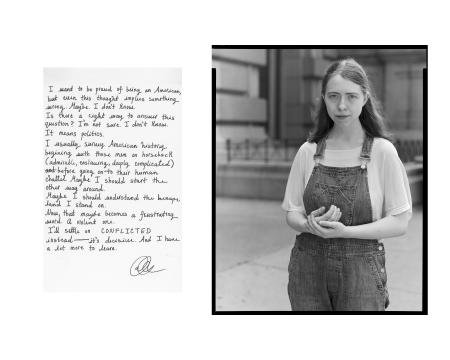 I want to be proud of being an American,
but even this thought implies something
wrong. Maybe. I don't know.
Is there a right way to answer this
question? I'm not sure. I don't know.
It means politics.
I usually survey American history,
beginning with those men on horseback
(admirable, enslaving, deeply complicated)
before going on to their human
chattel. Maybe I should start the
other way around.
Maybe I should understand the
land I stand on.
Now, that maybe becomes a frustrating
word. A violent one.
I'll settle on CONFLICTED
instead—it's decisive. And I have
a lot more to learn.